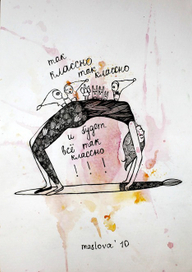 так
классно
так
классно
и будет
всё так
классно
! ! !
maslova' 10